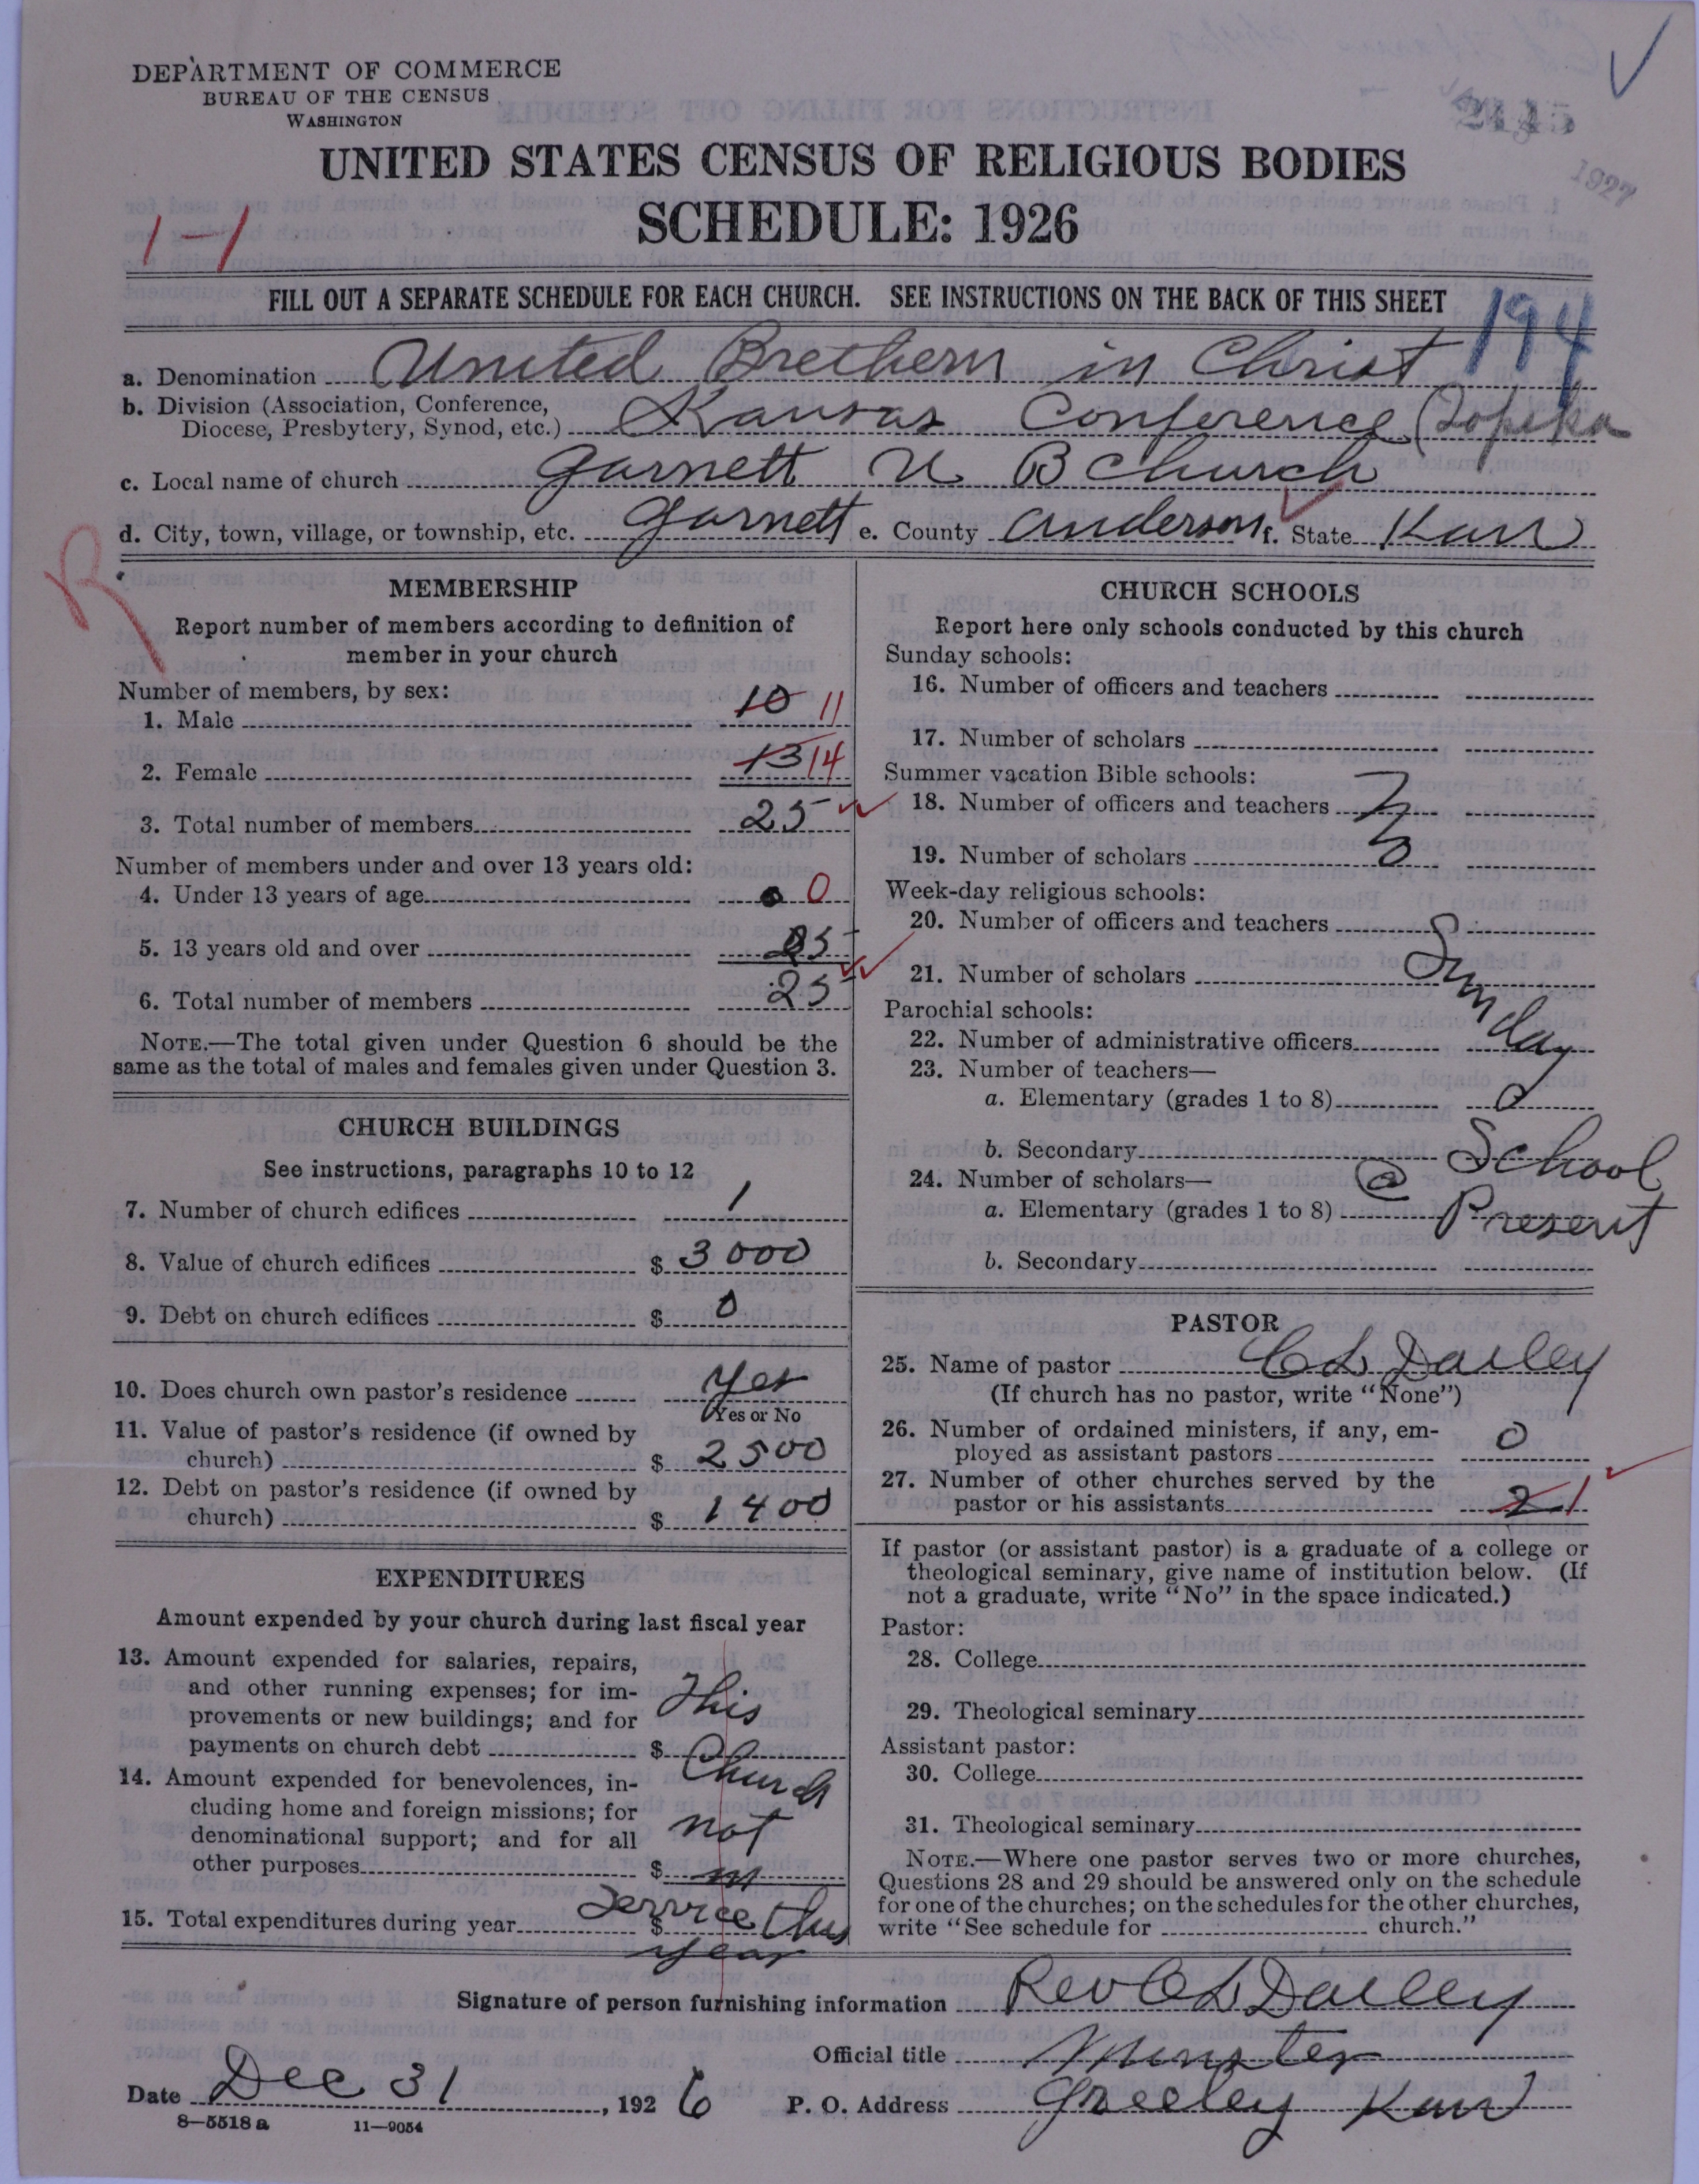 DEPARTMENT OF COMMERCE
BUREAU OF THE CENSUS
WASHINGTON
1927
UNITED STATES CENSUS OF RELIGIOUS BODIES
SCHEDULE: 1926
1-1
FILL OUT A SEPARATE SCHEDULE FOR EACH CHURCH. SEE INSTRUCTIONS ON THE BACK OF THIS SHEET
194
a. Denomination United Brethern in Christ
b. Division (Association, Conference, Diocese, Presbytery, Synod, etc.) Kansas Conference (Topeka
c. Local name of church Garnett U B Church
d. City, town, village, or township, etc. Garnett e. County Anderson f. State Kans
R
MEMBERSHIP
Report number of members according to definition of
member in your church
Number of members, by sex:
1. Male 10 11
2. Female 13 14
3. Total number of members 25
Number of members under and over 13 years old:
4. Under 13 years of age 0
5. 13 years old and over 25
6. Total number of members 25
NOTE.—The total given under Question 6 should be the
same as the total of males and females given under Question 3.
CHURCH BUILDINGS
See instructions, paragraphs 10 to 12
7. Number of church edifices 1
8. Value of church edifices $ 3000
9. Debt on church edifices $ 0
10. Does church own pastor's residence Yes
Yes or No
11. Value of pastor's residence (if owned by
church) $ 2500
12. Debt on pastor's residence (if owned by
church) $ 1400
EXPENDITURES
Amount expended by your church during last fiscal year
13. Amount expended for salaries, repairs,
and other running expenses; for im-
provements or new buildings; and for This
payments on church debt $ Church
14. Amount expended for benevolences, in-
cluding home and foreign missions; for
denominational support; and for all not
other purposes $ in
15. Total expenditures during year $ Service this
year
CHURCH SCHOOLS
Report here only schools conducted by this church
Sunday schools:
16. Number of officers and teachers
17. Number of scholars
Summer vacation Bible schools:
18. Number of officers and teachers
19. Number of scholars
Week-day religious schools:
20. Number of officers and teachers
21. Number of scholars Sunday
Parochial schools:
22. Number of administrative officers
23. Number of teachers—
a. Elementary (grades 1 to 8)
b. Secondary School
24. Number of scholars— @
a. Elementary (grades 1 to 8) Present
b. Secondary
PASTOR
25. Name of pastor C L Dailey
(If church has no pastor, write "None")
26. Number of ordained ministers, if any, em-
ployed as assistant pastors 0
27. Number of other churches served by the
pastor or his assistants 2 1
If pastor (or assistant pastor) is a graduate of a college or
theological seminary, give name of institution below. (If
not a graduate, write "No" in the space indicated.)
Pastor:
28. College
29. Theological seminary
Assistant pastor:
30. College
31. Theological seminary
NOTE.—Where one pastor serves two or more churches,
Questions 28 and 29 should be answered only on the schedule
for one of the churches; on the schedules for the other churches,
write "See schedule for church."
Signature of person furnishing information Rev C L Dailey
Official title Minster
Date Dec 31, 1926 P. O. Address Greeley Kans
8—5518 a 11—9054